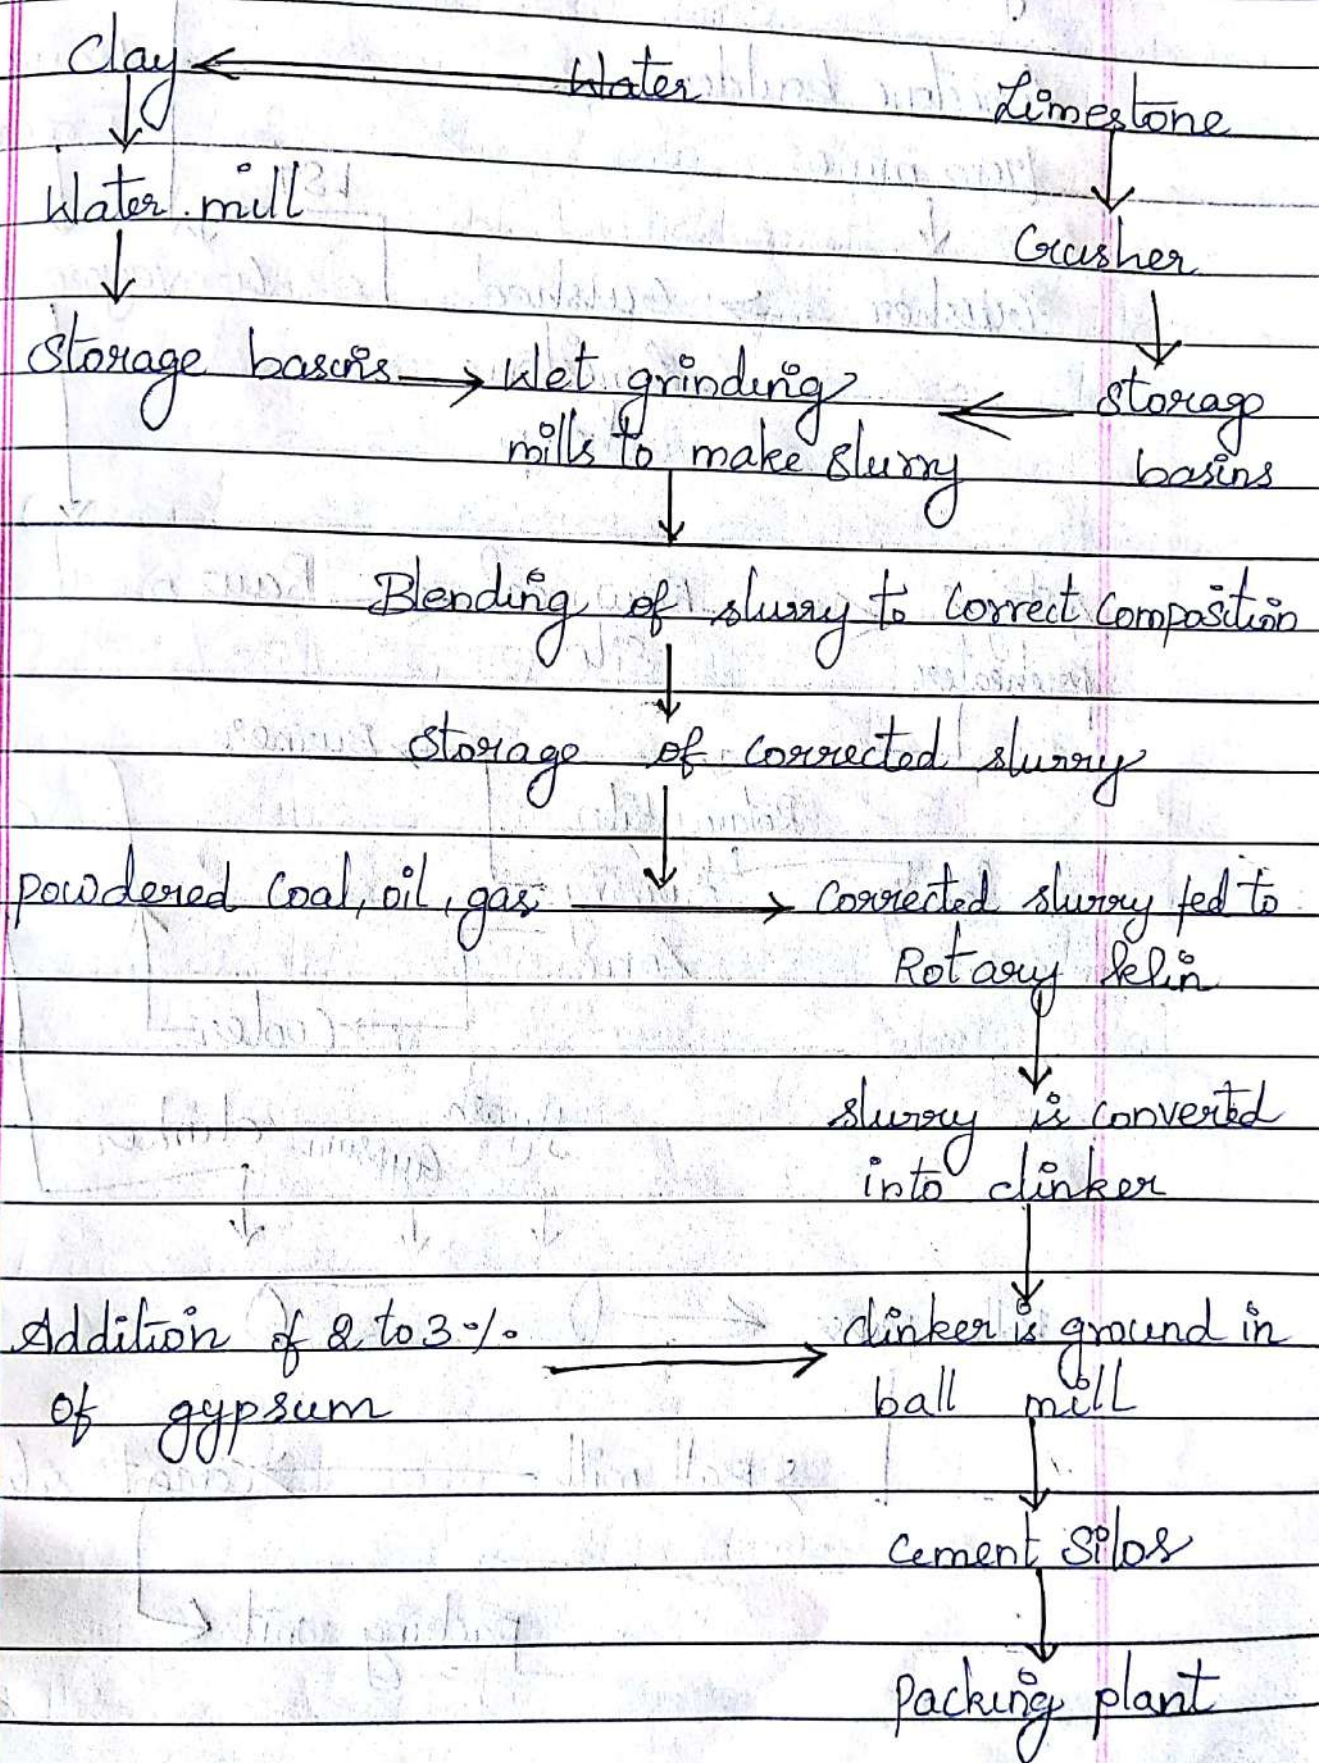 Clay Water Limestone
Water mill
Crusher
Storage basins Wet grinding storage
mills to make slurry basins
Blending of slurry to correct composition
Storage of corrected slurry
powdered coal, oil, gas corrected slurry fed to
Rotary
slurry is converted
into clinker
Addition of 2 to 3% clinker is ground in
of gypsum ball mill
cement silos
packing plant